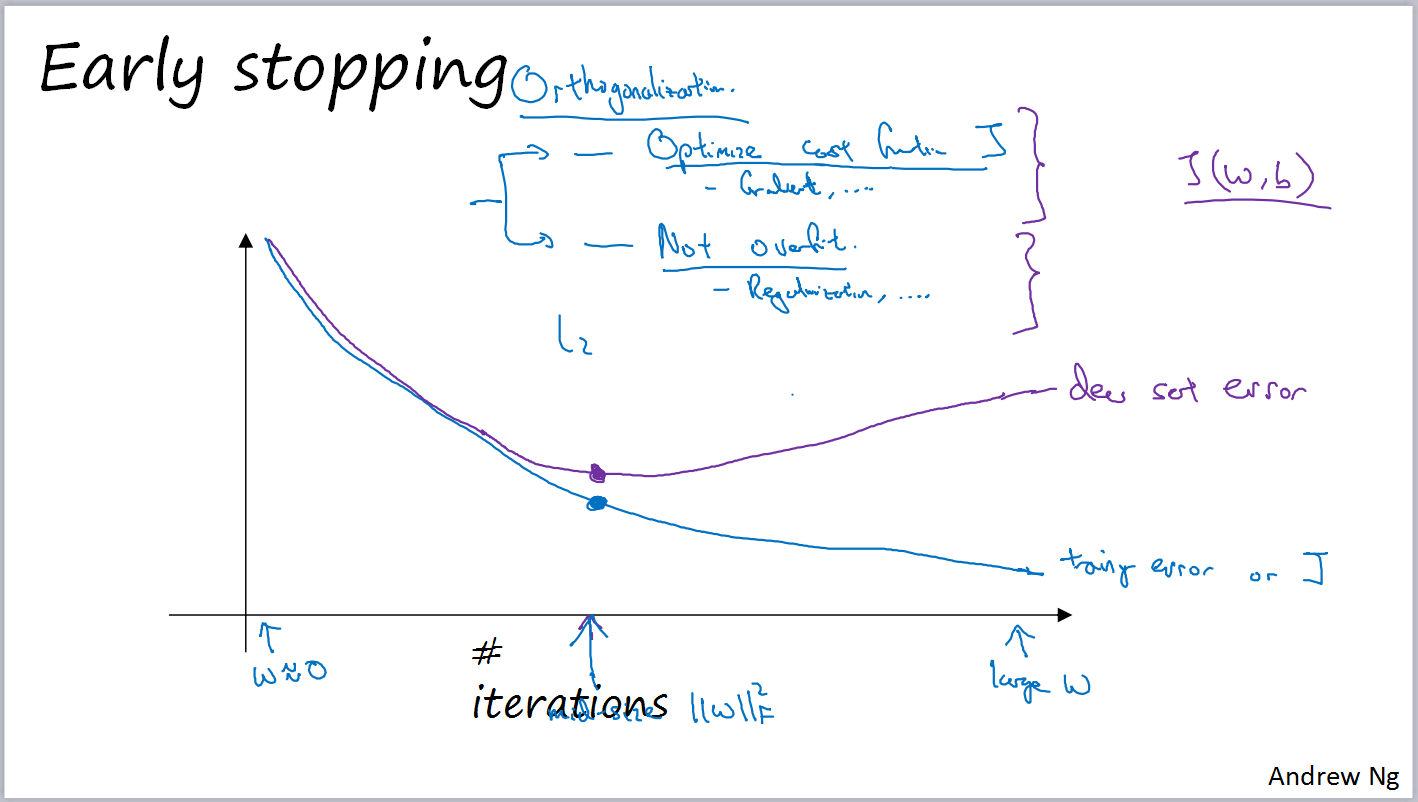 Early stopping
Orthogonalization.
— Optimize cost function J
- Gradient, ....
J(w,b)
— Not overfit.
- Regularization, ....
L2
dev set error
training error or J
w≈0
#
iterations
mid-size ||w||²F
large w
Andrew Ng